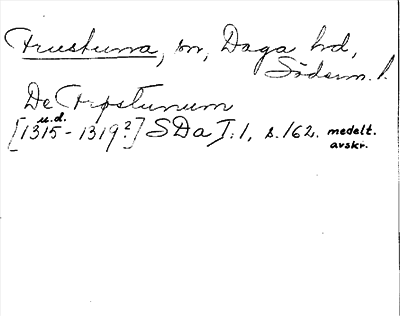 Frustuna, sn, Daga hd,
Söderm. l.
De Frøstunum
u.d.
[1315-1319?] SDa I:1, s. 162. medelt.
avskr.